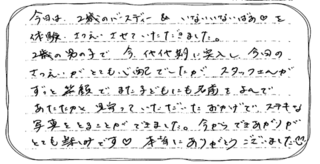 今日は、2歳のバースデー & いないいないばあ♡を
体験させていただきました。
2歳の男の子で今 代期に突入し今回の
さつえいがとても心配でしたが スタッフさんが
ずっと笑顔で また子どもにも名前をよんで
あたたかく見守っていただいたおかげで ステキな
写真をとることができました。今からできあがりが
とても楽しみです♡ 本当にありがとうございました